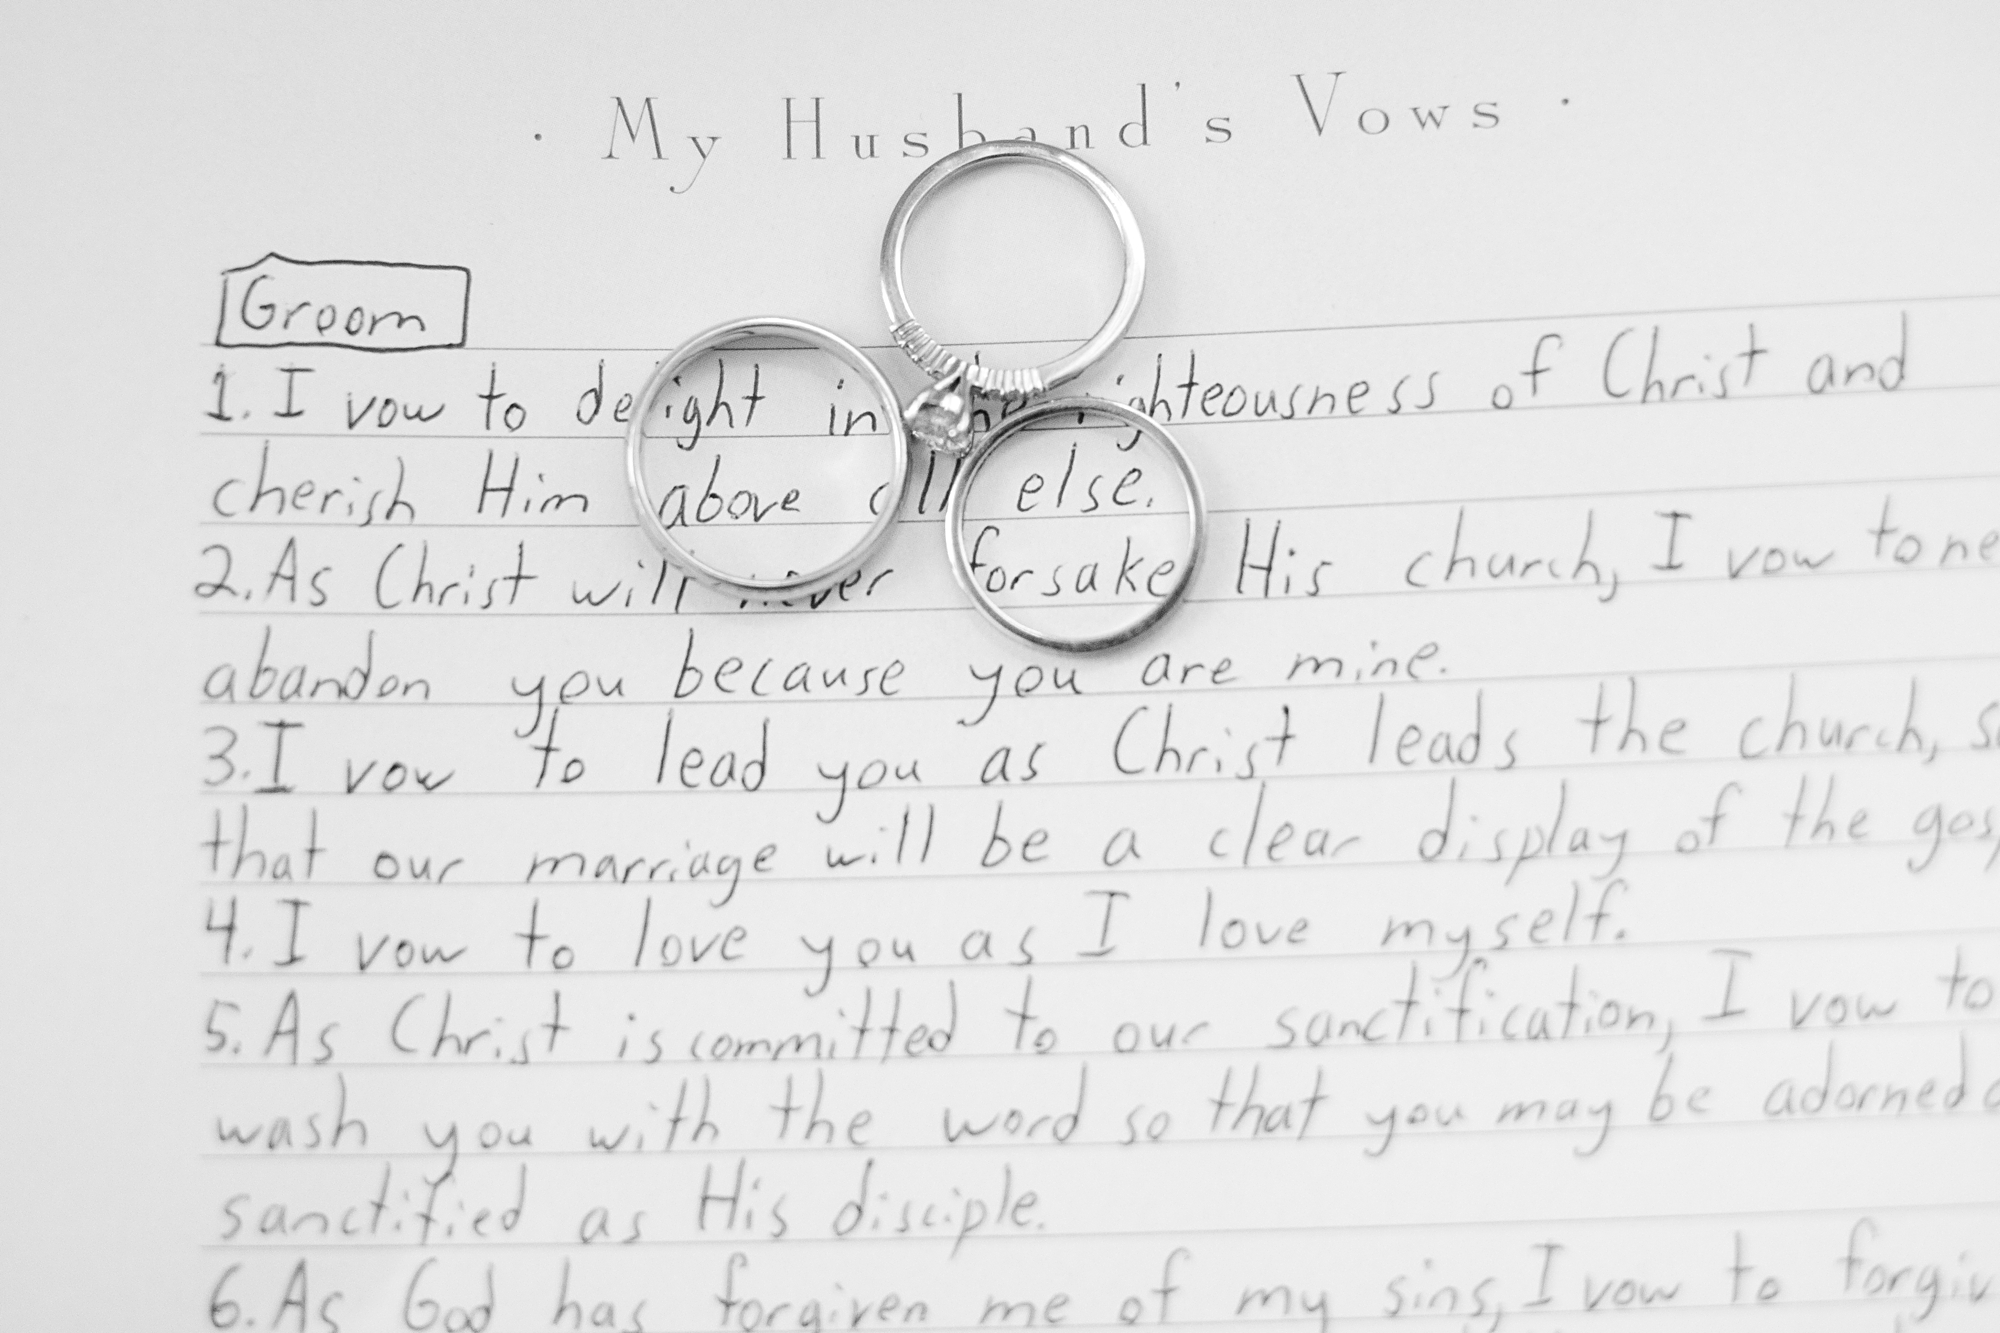 · My Husband's Vows ·
Groom
1. I vow to delight in the righteousness of Christ and
cherish Him above all else.
2. As Christ will never forsake His church, I vow to ne
abandon you because you are mine.
3. I vow to lead you as Christ leads the church, s
that our marriage will be a clear display of the gos
4. I vow to love you as I love myself.
5. As Christ is committed to our sanctification, I vow to
wash you with the word so that you may be adorned
sanctified as His disciple.
6. As God has forgiven me of my sins, I vow to forgiv